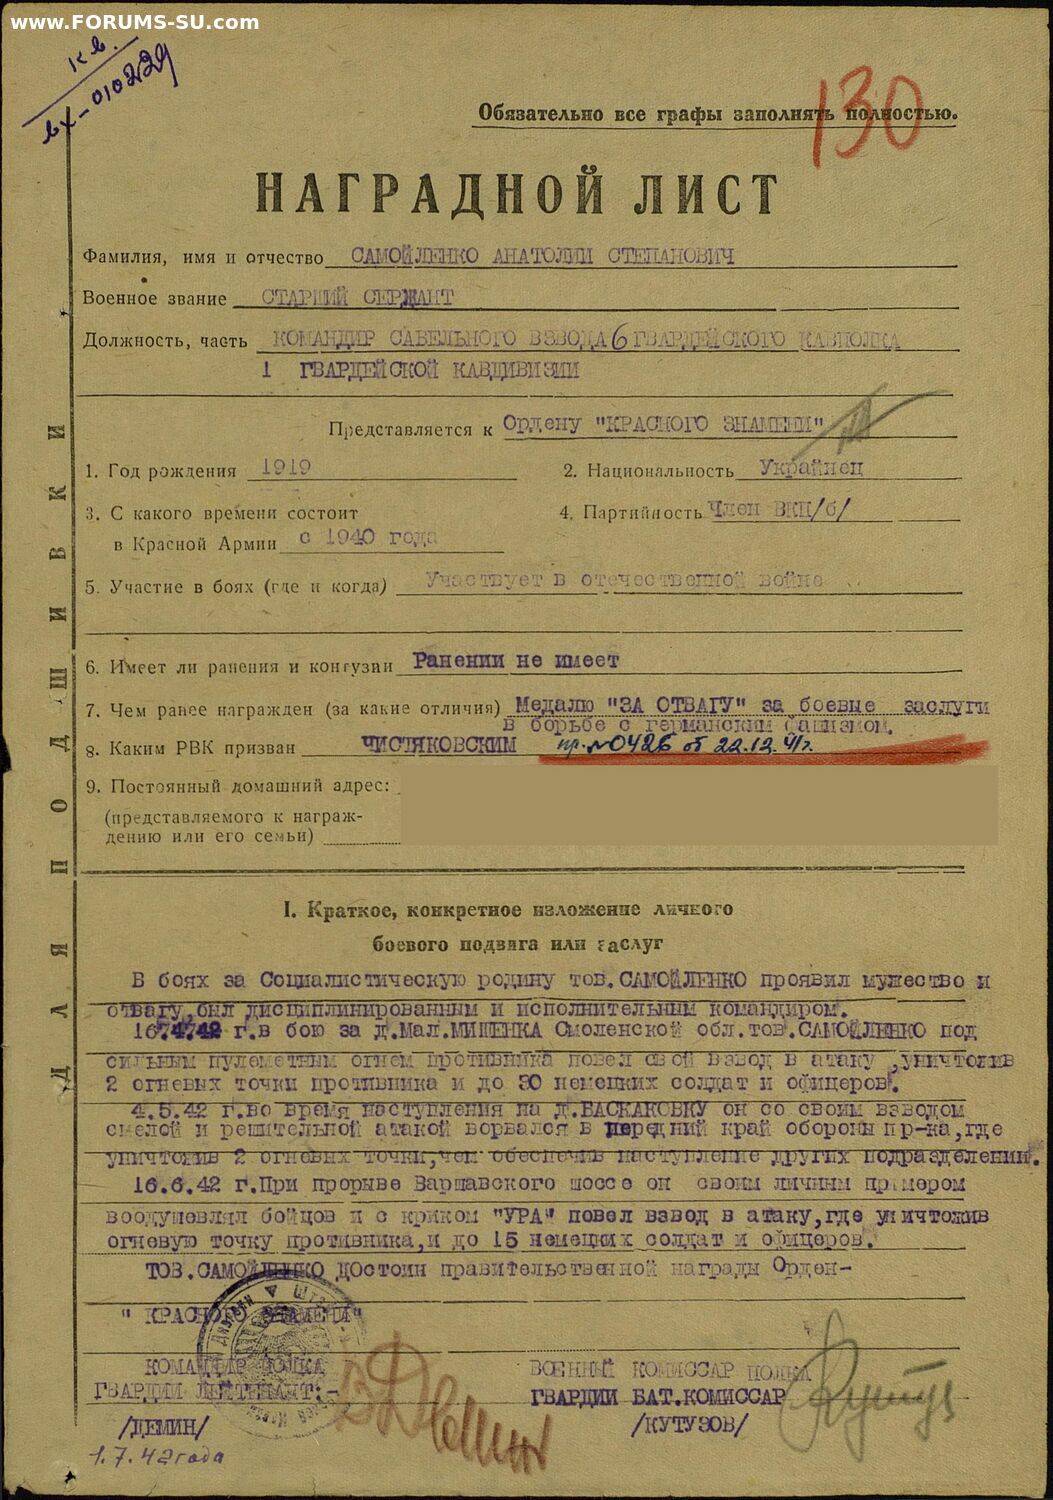 www.FORUMS-SU.com
кв.
вх-010229
130
Обязательно все графы заполнять полностью.
НАГРАДНОЙ ЛИСТ
Фамилия, имя и отчество САМОЙЛЕНКО АНАТОЛИЙ СТЕПАНОВИЧ
Военное звание СТАРШИЙ СЕРЖАНТ
Должность, часть КОМАНДИР САБЕЛЬНОГО ВЗВОДА 6 ГВАРДЕЙСКОГО КАВПОЛКА
1 ГВАРДЕЙСКОЙ КАВДИВИЗИИ
Представляется к Ордену "КРАСНОГО ЗНАМЕНИ"
1. Год рождения 1919
2. Национальность Украйнец
3. С какого времени состоит
в Красной Армии с 1940 года
4. Партийность Член ВКП/б/
5. Участие в боях (где и когда) Участвует в отечественной войне
6. Имеет ли ранения и контузии Ранении не имеет
7. Чем ранее награжден (за какие отличия) Медалю "ЗА ОТВАГУ" за боевые заслуги
в борьбе с германским фашизмом.
8. Каким РВК призван ЧИСТЯКОВСКИМ пр. №0426 от 22.12.41г.
9. Постоянный домашний адрес:
(представляемого к награж-
дению или его семьи)
ДЛЯ ПОДШИВКИ
I. Краткое, конкретное изложение личного
боевого подвига или заслуг
В боях за Социалистическую родину тов.САМОЙЛЕНКО проявил мужество и
отвагу,был дисциплинированным и исполнительным командиром.
16.4.42 г.в бою за д.Мал.МИШЕНКА Смоленской обл.тов.САМОЙЛЕНКО под
сильным пулеметным огнем противника повел свой взвод в атаку ,уничтожив
2 огневых точки противника и до 30 немецких солдат и офицеров.
4.5.42 г.во время наступления на д.БАСКАКОВКУ он со своим взводом
смелой и решительной атакой ворвался в передний край обороны пр-ка,где
уничтожив 2 огневых точки,чем обеспечив наступление других подразделении.
16.6.42 г.При прорыве Варшавского шоссе он своим личным примером
воодушевлял бойцов и с криком "УРА" повел взвод в атаку,где уничтожив
огневую точку противника,и до 15 немецких солдат и офицеров.
ТОВ.САМОЙЛЕНКО достоин правительственной награды Орден-
" КРАСНОГО ЗНАМЕНИ"
КОМАНДИР ПОЛКА
ГВАРДИИ ЛЕЙТЕНАНТ:-
/ДЕМИН/
1.7.42 года
Демин
ВОЕННЫЙ КОМИССАР ПОЛКА
ГВАРДИИ БАТ.КОМИССАР
/КУТУЗОВ/
Кутуз